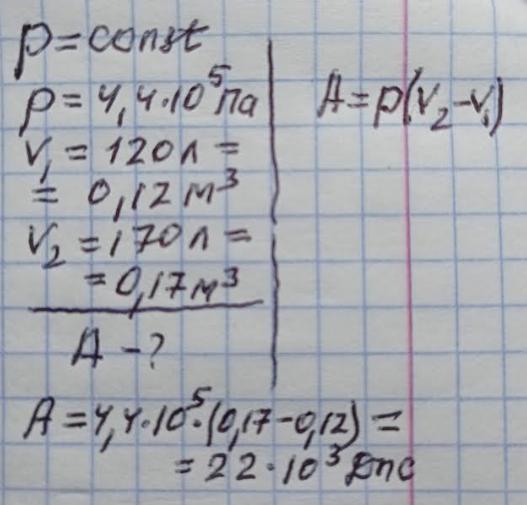 p = const
p = 4,4·10⁵ Па
V₁ = 120 л =
= 0,12 м³
V₂ = 170 л =
= 0,17 м³
A - ?
A = p(V₂ - V₁)
A = 4,4·10⁵·(0,17 - 0,12) =
= 22·10³ Дж